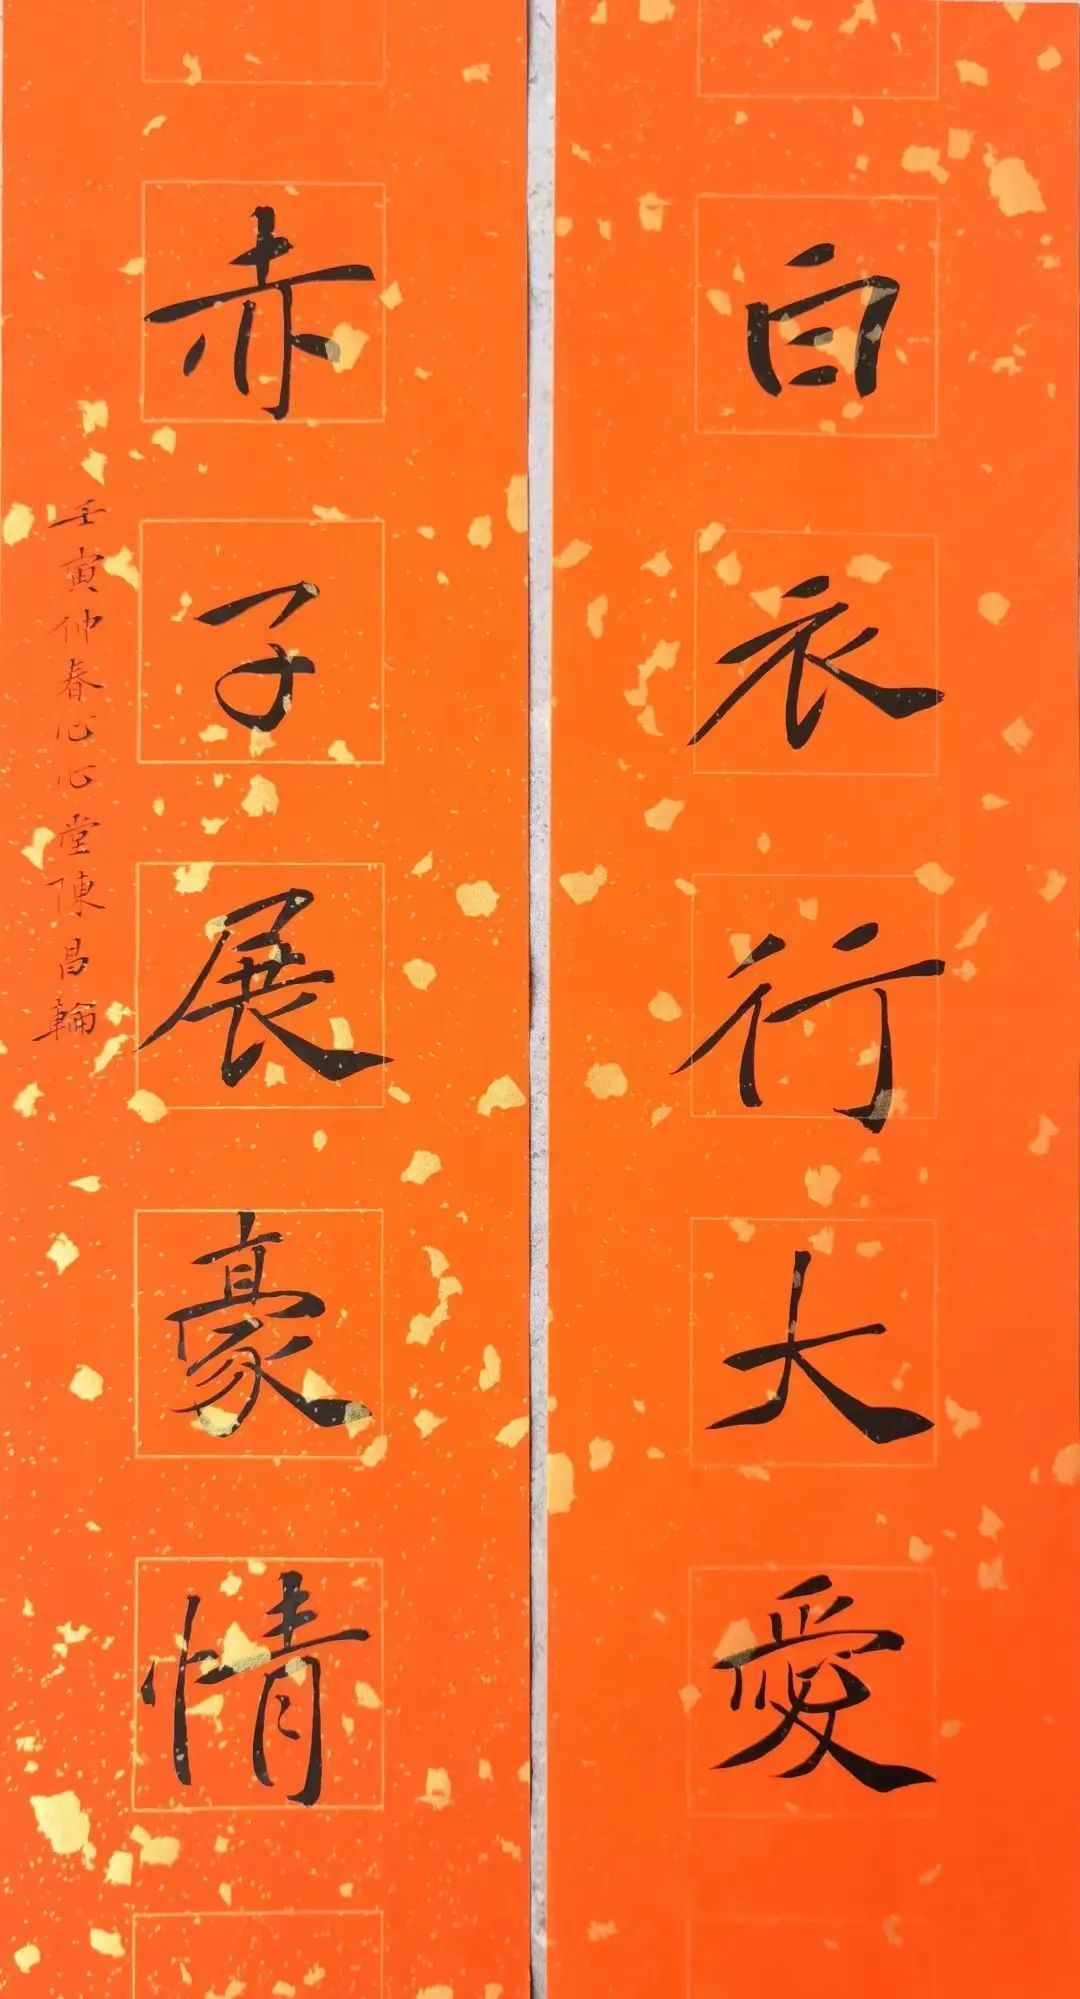 白衣行大愛
赤子展豪情
壬寅仲春心心堂陳昌輪